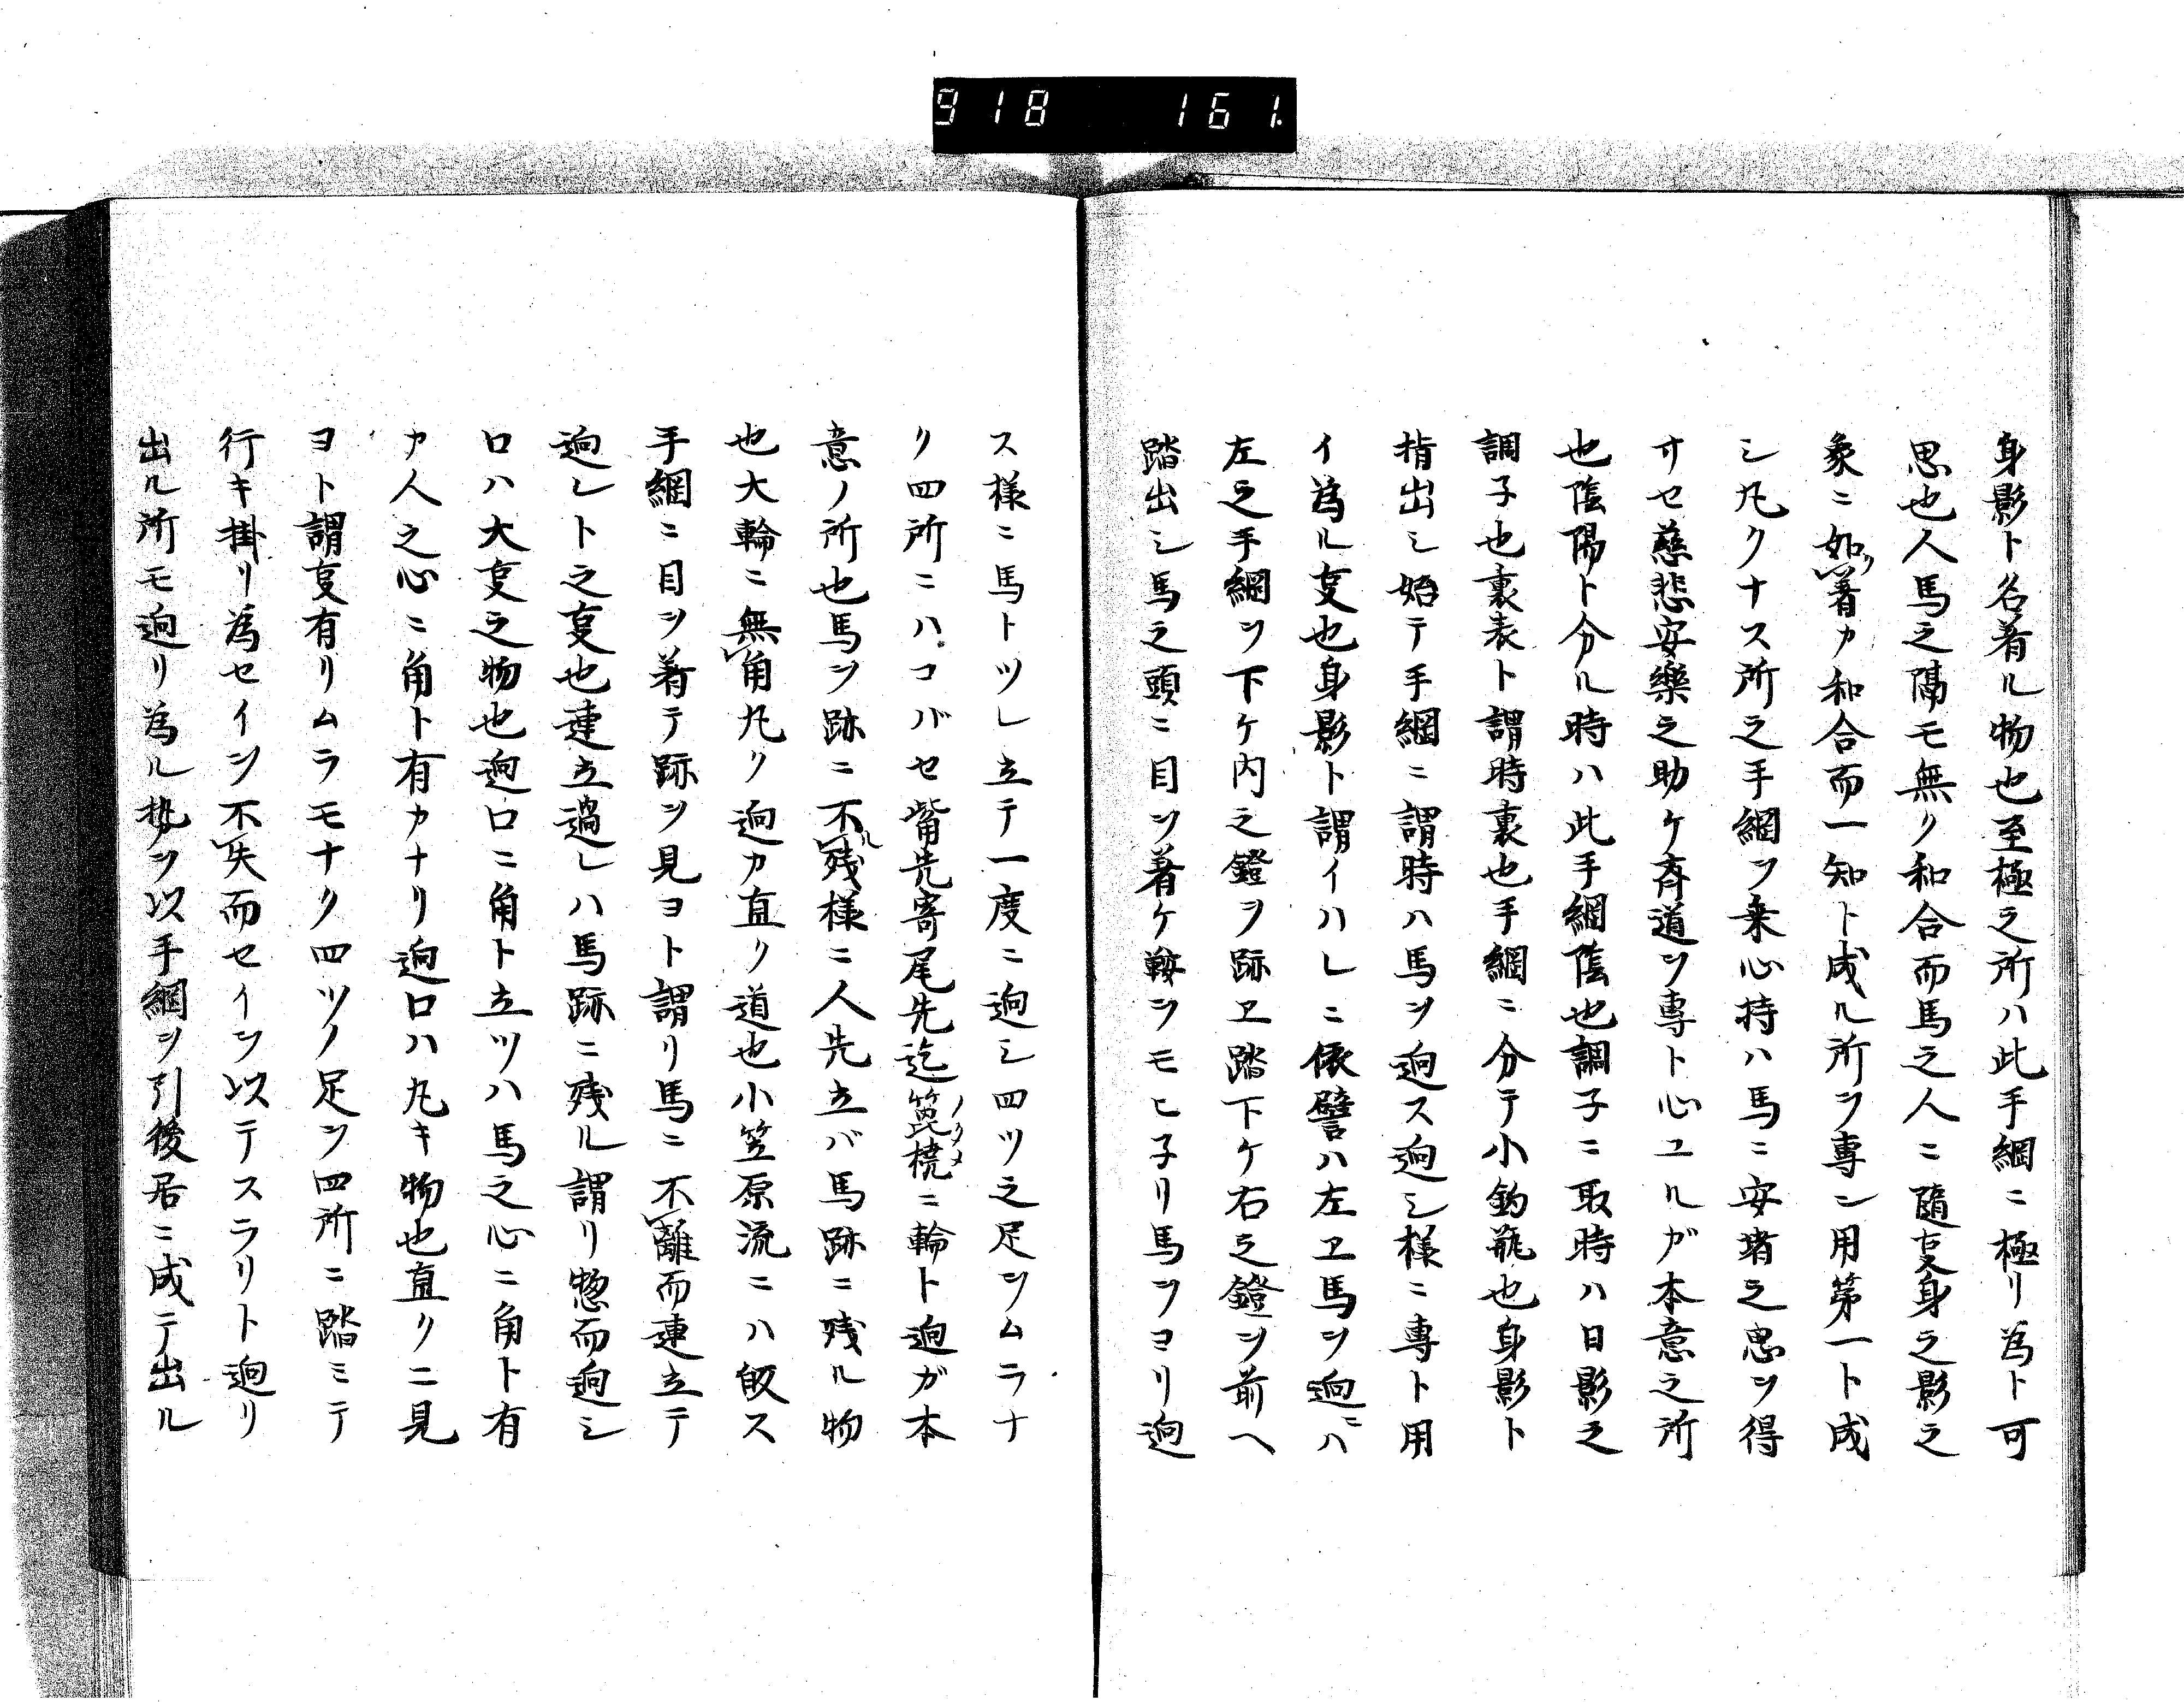 918 161.
身影ト名着ル物也至極之所ハ此手綱ニ極リ為ト可
思也人馬之隔モ無ク和合而馬之人ニ随亊身之影之
象ニ如リ着カ和合而一知ト成ル所ヲ専ン用第一ト成
シ丸クナス所之手綱ヲ乗心持ハ馬ニ安堵之思ヲ得
サセ慈悲安樂之助ケ斉道ヲ専ト心ユルガ本意之所
也陰陽ト分ル時ハ此手綱陰也調子ニ取時ハ日影之
調子也裏表ト謂時裏也手綱ニ分テ小鈎瓶也身影ト
指出シ始テ手綱ニ謂時ハ馬ヲ廻ス廻シ様ニ専ト用
イ為ル亊也身影ト謂イハレニ依譬ハ左エ馬ヲ廻ニハ
左之手綱ヲ下ケ内之鐙ヲ跡エ踏下ケ右之鐙ヲ前ヘ
踏出シ馬之頭ニ目ヲ着ケ鞍ヲモヒ子リ馬ヲヨリ廻
ス様ニ馬トツレ立テ一度ニ廻シ四ツ之足ヲムラナ
ク四所ニハコバセ觜先寄尾先迄箆橈ノタメニ輪ト廻ガ本
意ノ所也馬ヲ跡ニ不残ル様ニ人先立バ馬跡ニ残ル物
也大輪ニ無角丸ク廻カ直ク道也小笠原流ニハ皈ス
手綱ニ目ヲ着テ跡ヲ見ヨト謂リ馬ニ不離而連立テ
廻レト之亊也連立過レハ馬跡ニ残ル謂リ惣而廻シ
口ハ大亊之物也廻口ニ角ト立ツハ馬之心ニ角ト有
カ人之心ニ角ト有カナリ廻口ハ丸キ物也直クニ見
ヨト謂亊有リムラモナク四ツノ足ヲ四所ニ踏ミテ
行キ掛リ為セイヲ不失而セイヲ以テスラリト廻リ
出ル所モ廻リ為ル埶ヲ以手綱ヲ引後居ニ成テ出ル